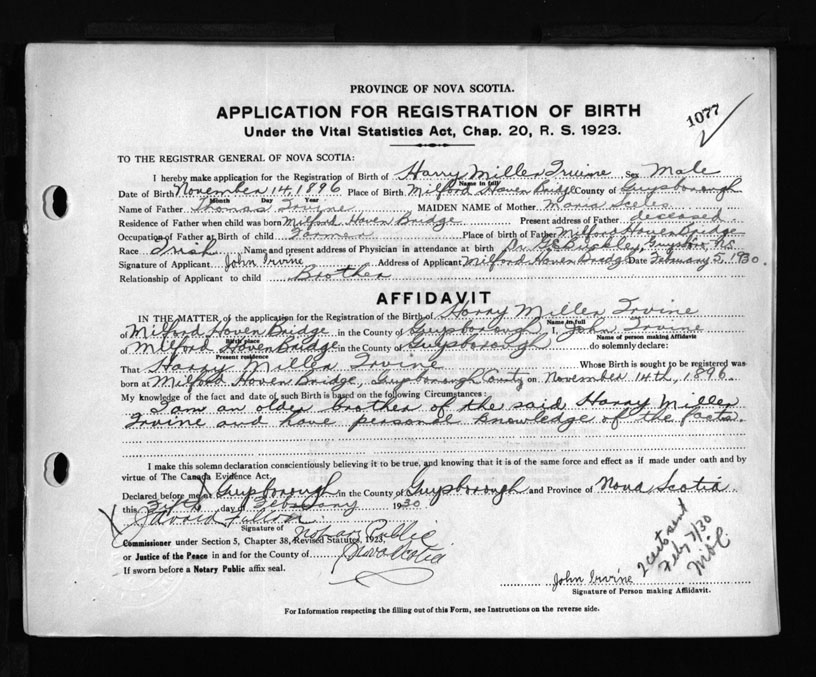 PROVINCE OF NOVA SCOTIA.
APPLICATION FOR REGISTRATION OF BIRTH
1077
Under the Vital Statistics Act, Chap. 20, R. S. 1923.
TO THE REGISTRAR GENERAL OF NOVA SCOTIA:
I hereby make application for the Registration of Birth of Harry Miller Irvine Sex Male
Name in full
Date of Birth November 14, 1896 Place of Birth Milford Haven Bridge County of Guysborough
Month Day Year
Name of Father Thomas Irvine MAIDEN NAME of Mother Maria
Residence of Father when child was born Milford Haven Bridge Present address of Father deceased
Occupation of Father at Birth of child Farmer Place of birth of Father Milford Haven Bridge
Race Irish Name and present address of Physician in attendance at birth Dr. G.E. Buckley, Guysboro, N.S.
Signature of Applicant John Irvine Address of Applicant Milford Haven Bridge Date February 5, 1930.
Relationship of Applicant to child Brother
AFFIDAVIT
IN THE MATTER of the application for the Registration of the Birth of Harry Miller Irvine
Name in full
of Milford Haven Bridge in the County of Guysborough, I, John Irvine
Birth place Name of person making Affidavit
of Milford Haven Bridge in the County of Guysborough do solemnly declare:
Present residence
That Harry Miller Irvine Whose Birth is sought to be registered was
born at Milford Haven Bridge, Guysborough County on November 14th, 1896.
My knowledge of the fact and date of such Birth is based on the following Circumstances:
I am an older brother of the said Harry Miller
Irvine and have personal knowledge of the facts.
I make this solemn declaration conscientiously believing it to be true, and knowing that it is of the same force and effect as if made under oath and by
virtue of The Canada Evidence Act.
Declared before me at Guysborough in the County of Guysborough and Province of Nova Scotia
this Fifth day of February 1930
Fulton
Signature of
Notary Public
Commissioner under Section 5, Chapter 38, Revised Statutes, 1923
or Justice of the Peace in and for the County of Nova Scotia
If sworn before a Notary Public affix seal.
2 certs sent
Feb 7/30
John Irvine
Signature of Person making Affidavit.
For Information respecting the filling out of this Form, see Instructions on the reverse side.